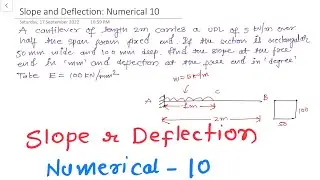 Slope and Deflection: Numerical 10
Saturday, 17 September 2022 10:59 PM
A cantilever of length 2m carries a UDL of 5 kN/m over
half the span from fixed end. If the section is rectangular
50 mm wide and 100 mm deep. find the slope at the free
end in 'mm' and defection at the free end in 'degree'
Take E = 100 kN/mm²
w = 5 kN/m
A
C
B
1m
2m
100
50
Slope & Deflection
Numerical - 10